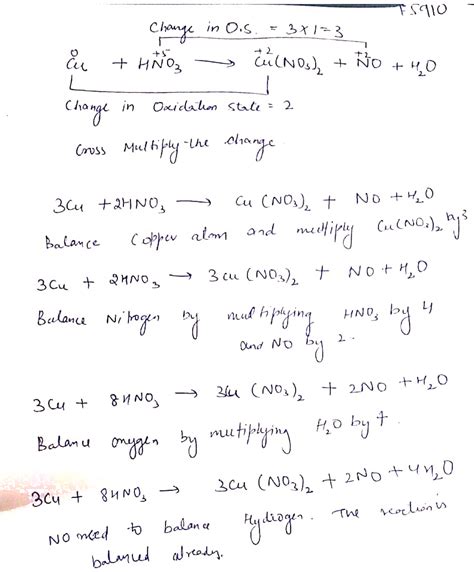 FS910
Change in O.S. = 3×1=3
0 +5 +2 +2
Cu + HNO₃ ⟶ Cu(NO₃)₂ + NO + H₂O
Change in Oxidation state = 2
Cross Multiply the change
3Cu + 2HNO₃ ⟶ Cu (NO₃)₂ + NO + H₂O
Balance Copper atom and multiply Cu(NO₃)₂ by 3
3Cu + 2HNO₃ → 3Cu (NO₃)₂ + NO + H₂O
Balance Nitrogen by multiplying HNO₃ by 4
and NO by 2.
3Cu + 8HNO₃ → 3Cu (NO₃)₂ + 2NO + H₂O
Balance oxygen by multiplying H₂O by 4.
3Cu + 8HNO₃ → 3Cu (NO₃)₂ + 2NO + 4H₂O
NO need to balance Hydrogen. The reaction is
balanced already.